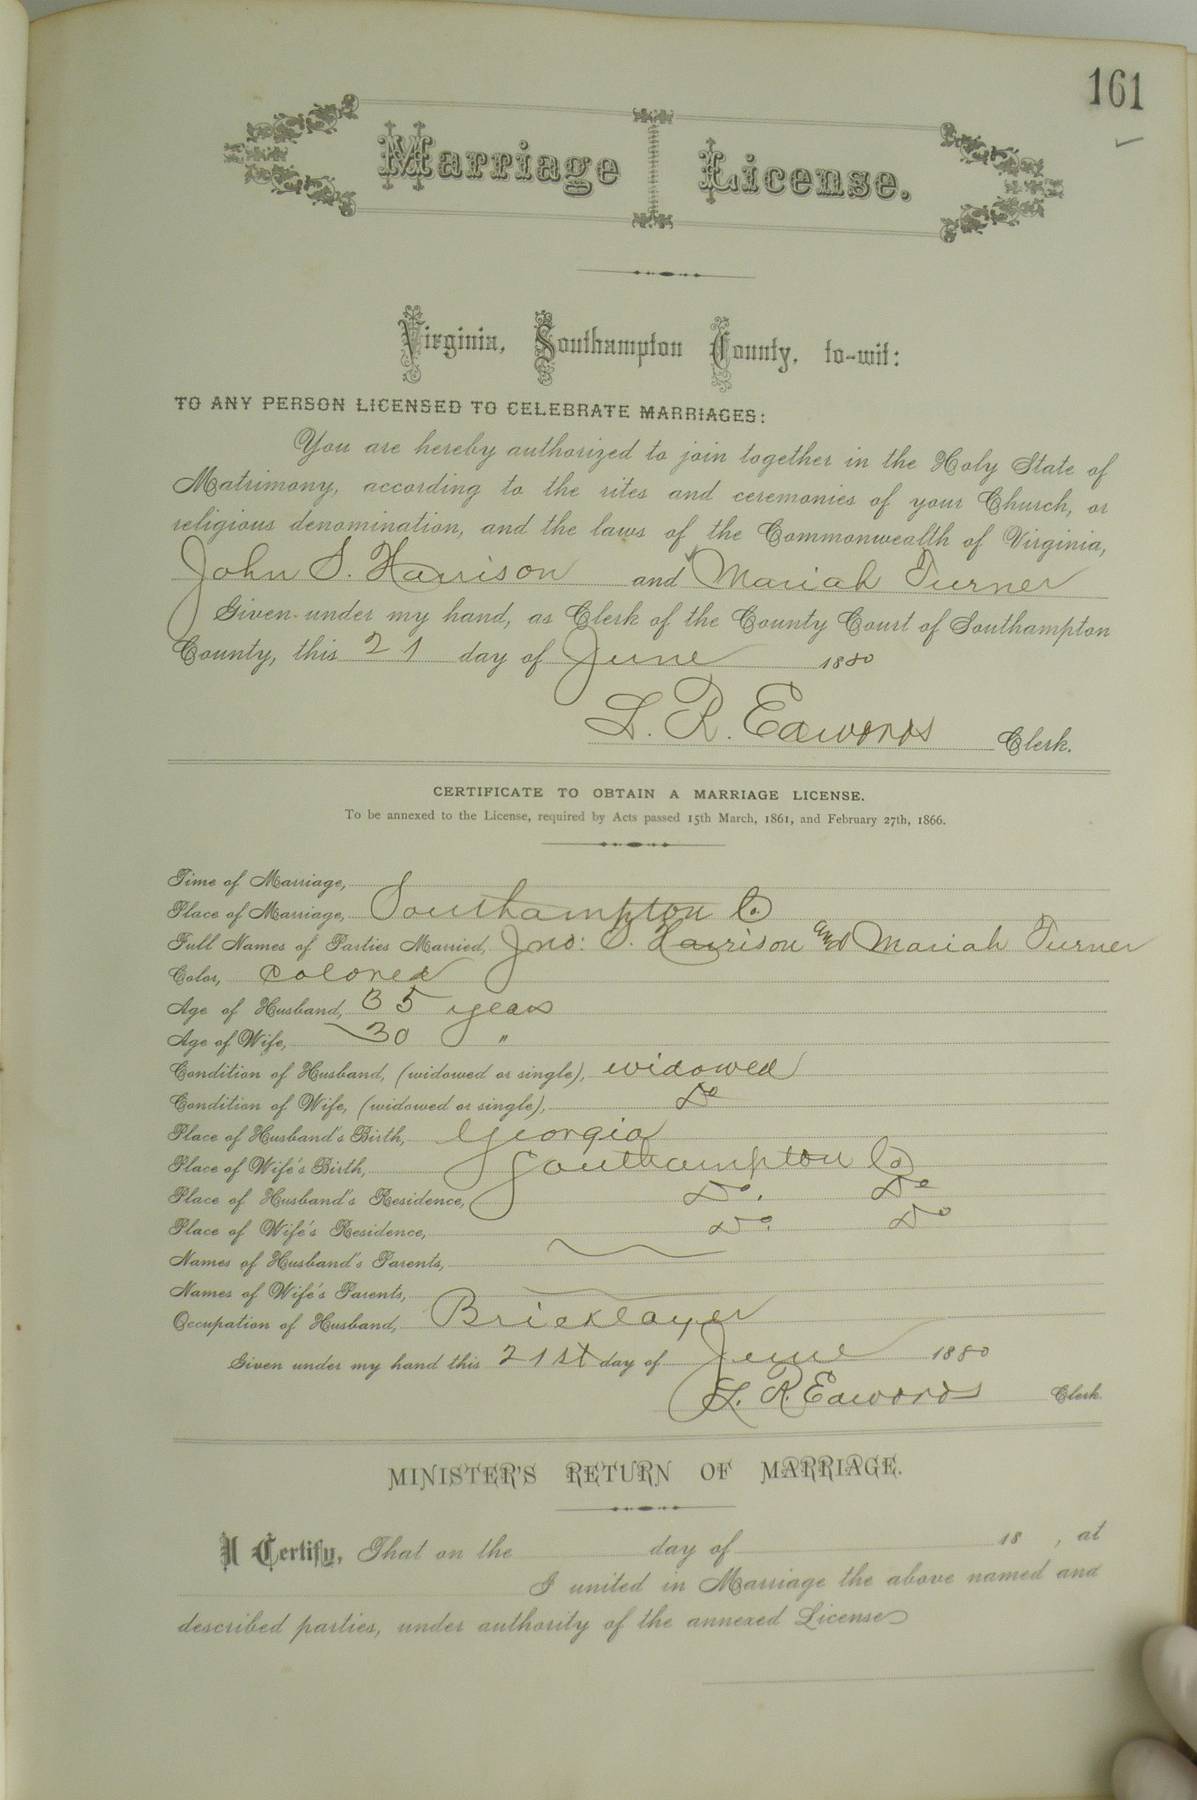 161
Marriage License.
Virginia, Southampton County, to-wit:
TO ANY PERSON LICENSED TO CELEBRATE MARRIAGES:
You are hereby authorized to join together in the Holy State of
Matrimony, according to the rites and ceremonies of your Church, or
religious denomination, and the laws of the Commonwealth of Virginia,
John S. Harrison and Mariah Turner
Given under my hand, as Clerk of the County Court of Southampton
County, this 21 day of June 1880
L. R. Edwards Clerk.
CERTIFICATE TO OBTAIN A MARRIAGE LICENSE.
To be annexed to the License, required by Acts passed 15th March, 1861, and February 27th, 1866.
Time of Marriage,
Place of Marriage, Southampton Co
Full Names of Parties Married, Jno: S. Harrison and Mariah Turner
Color, Colored
Age of Husband, 35 years
Age of Wife, 30 "
Condition of Husband, (widowed or single), widowed
Condition of Wife, (widowed or single), Do
Place of Husband's Birth, Georgia
Place of Wife's Birth, Southampton Co
Place of Husband's Residence, Do. Do
Place of Wife's Residence, Do. Do
Names of Husband's Parents,
Names of Wife's Parents,
Occupation of Husband, Bricklayer
Given under my hand this 21st day of June 1880
L. R. Edwards Clerk.
MINISTER'S RETURN OF MARRIAGE.
I Certify, That on the day of 18 , at
I united in Marriage the above named and
described parties, under authority of the annexed License